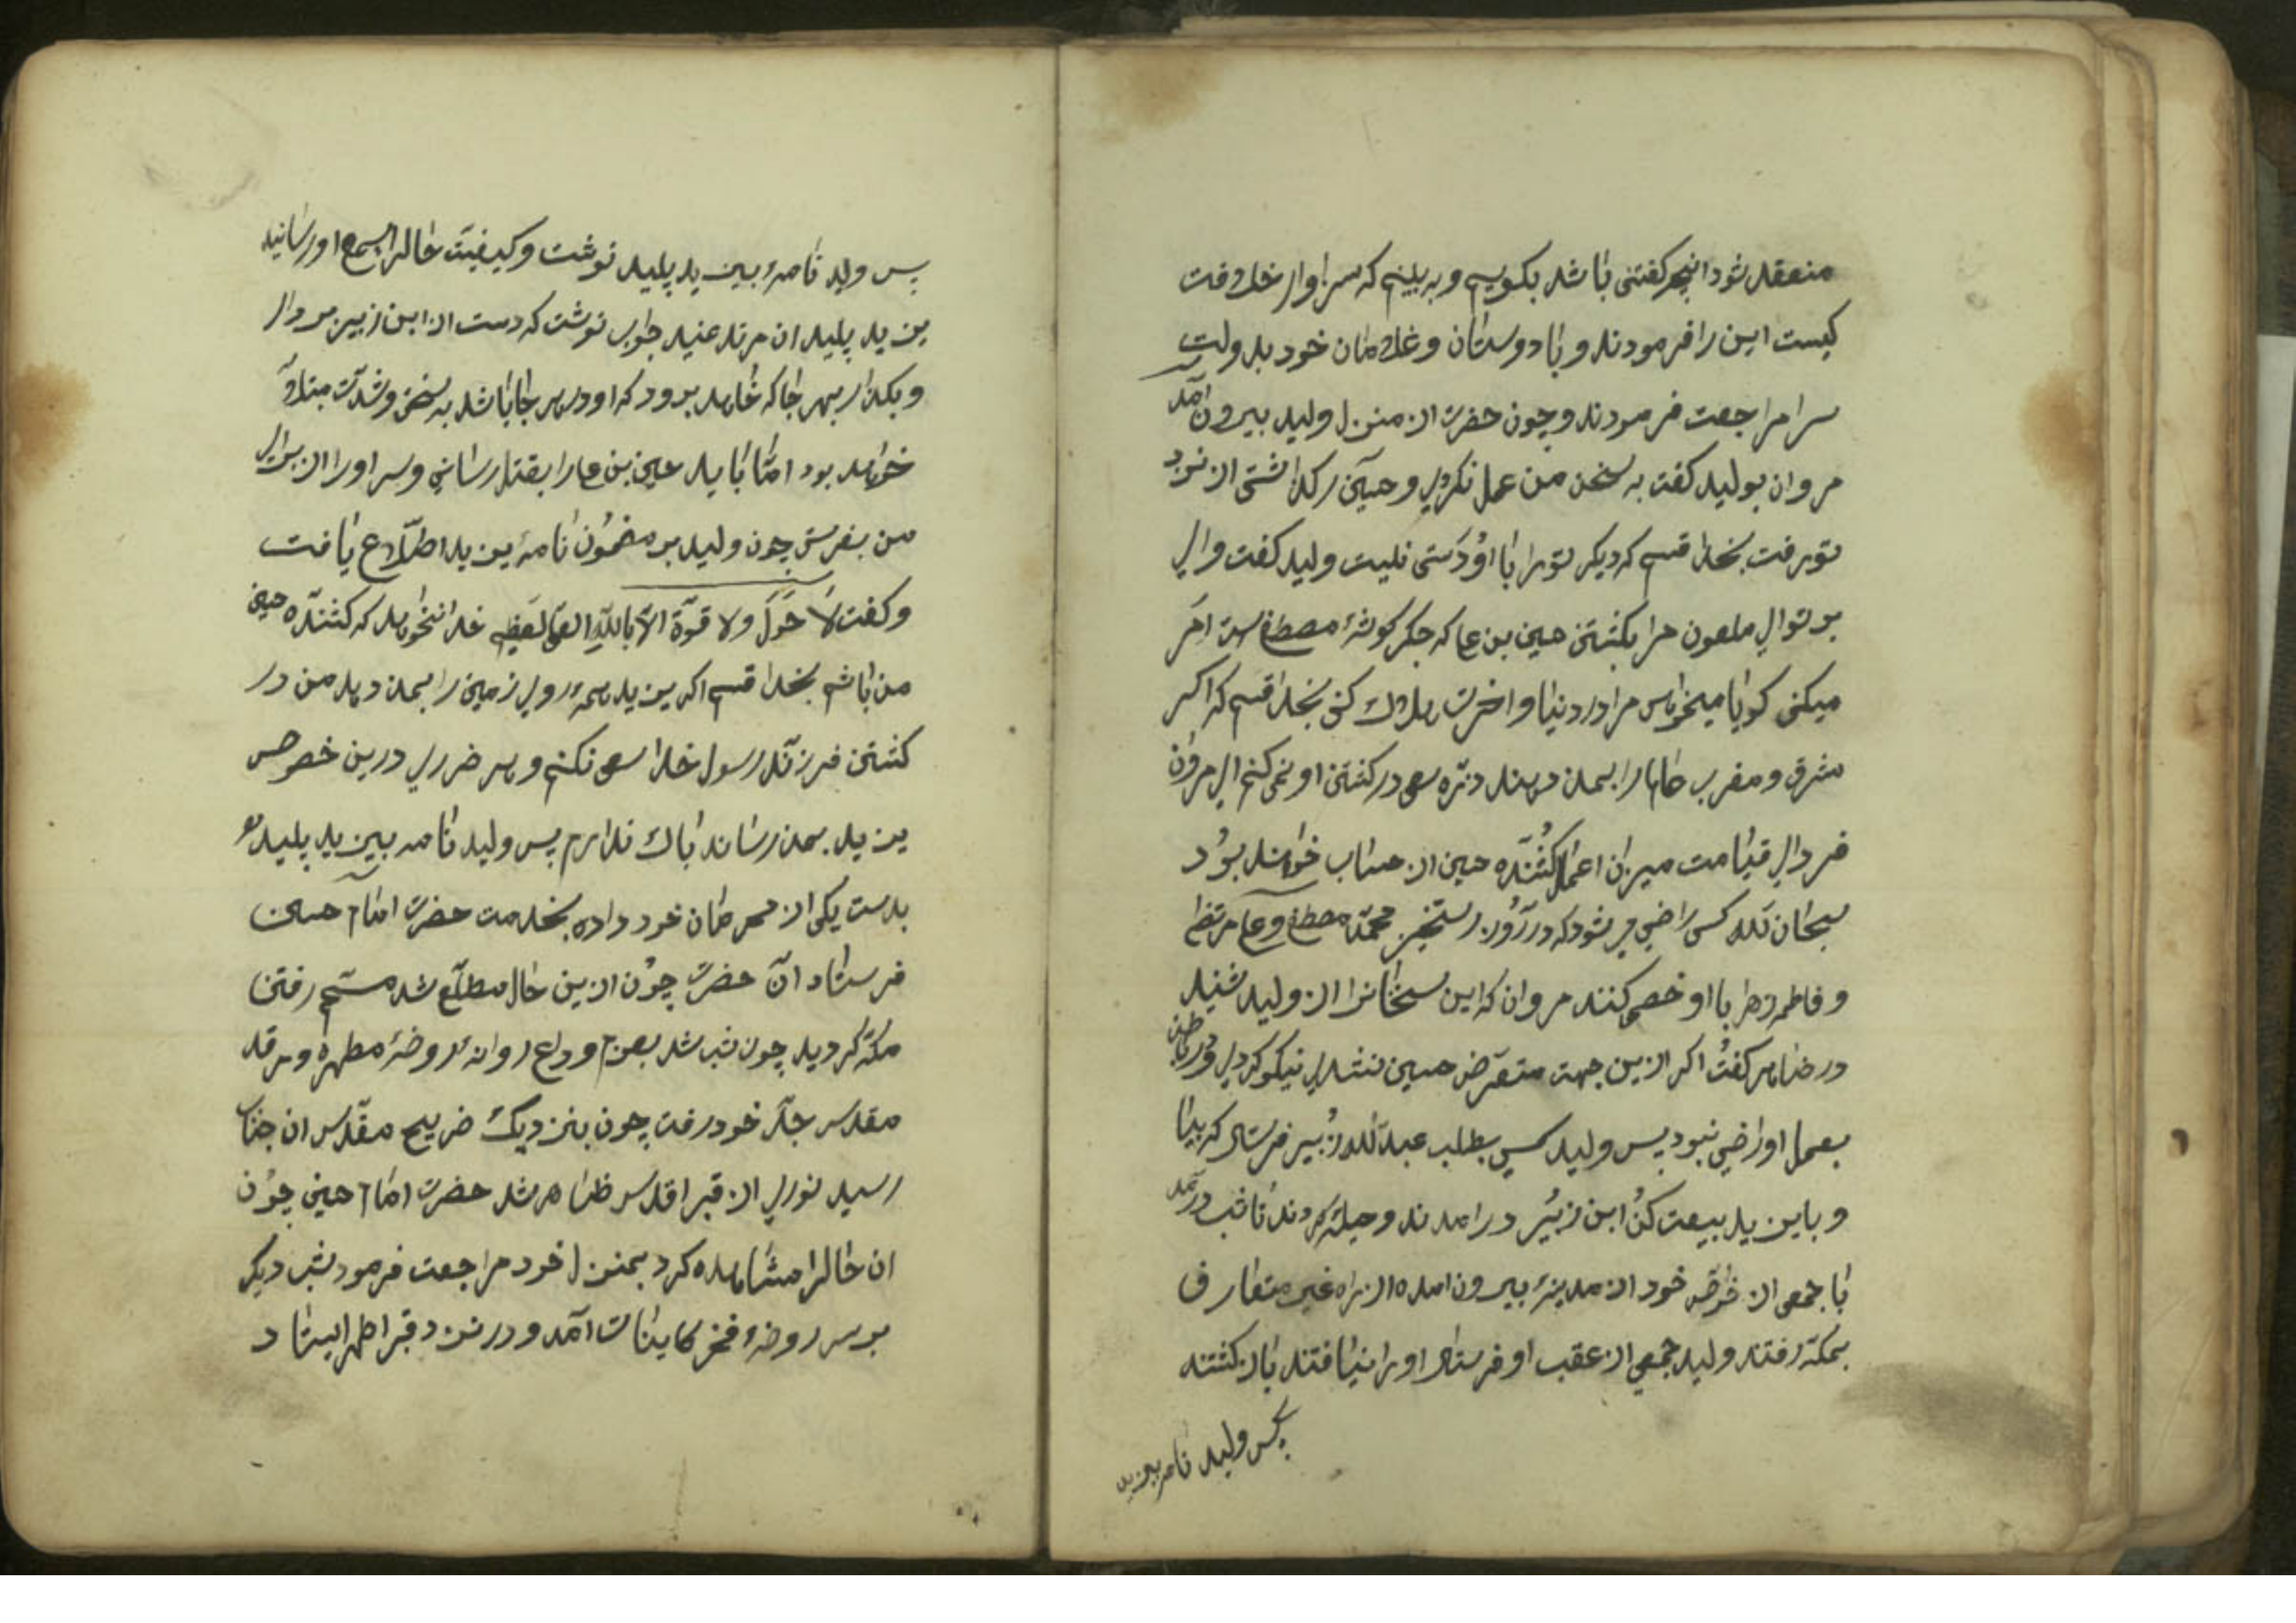 منعقد شود انچه کفتنی باشد بکوییم و به بینیم که سزاوار خلافت
کیست این را فرمودند و با دوستان و غلامان خود بدولت
سرا مراجعت فرمودند و چون حضرت از منزل ولید بیرون آمد
مروان بولید کفت به سخن من عمل نکردی و حسین را کذاشتی از نزد
تو رفت بخدا قسم که دیکر تو را با او دستی نیست ولید کفت وای
بر تو ای ملعون مرا بکشتن حسین بن علی که جکر کوشهٔ مصطفی است امر
میکنی کویا میخواهی مرا در دنیا و اخرت هلاک کنی بخدا قسم که اکر
مشرق و مغرب جهانرا بمن دهند ذره سعی در کشتن او نمی کنم ای مروان
فردای قیامت میزان اعمال کشنده حسین از حساب خواهند بود
سبحان الله کسی راضی می شود که در روز رستخیز محمد مصطفی و علی مرتضی
و فاطمه زهرا با او خصمی کنند مروان که این سخنانرا از ولید شنید
در ظاهر کفت اکر ازین جهت متعرض حسین نشدی نیکو کردی و در باطن
بعمل او راضی نبود پس ولید کسی بطلب عبدالله زبیر فرستاد که بیا
و با یزید بیعت کن ابن زبیر در امدند و حیله کردند تا شب درآمد
با جمعی از خواص خود از مدینه بیرون امده از راه غیر متعارف
بمکه رفتند ولید جمعی از عقب او فرستاد او را نیافتند باز کشتند
پس ولید نامه بیزید
پس ولید نامهٔ بیزید پلید نوشت و کیفیت حالرا بسمع او رسانید
یزید پلید ان مرتد عنید جواب نوشت که دست از ابن زبیر بردار
و بکذار بهر جا که خاهد برود که او در هر جا باشد به سختی و شدت مبتلا
خواهد بود اما باید حسین بن علی را بقتل رسانی و سر او را از برای
من بفرستی چون ولید بر مضمون نامهٔ یزید اطلاع یافت
و کفت لا حول ولا قوة الا بالله العلی العظیم خدا نخواهد که کشنده حسین
من باشم بخدا قسم اکر یزید همهٔ روی زمین را بمن دهد من در
کشتن فرزند رسول خدا سعی نکنم و هر ضرری درین خصوص
یزید بمن رساند باک ندارم پس ولید نامه یزید پلید را
بدست یکی از محرمان خود داده بخدمت حضرت امام حسین
فرستاد آن حضرت چون ازین حال مطلع شد مصمم رفتن
مکه کردید چون شب شد بعزم وداع روانهٔ روضهٔ مطهره و مرقد
مقدس جد خود رفت چون بنزدیک ضریح مقدس ان جناب
رسید نوری از قبر اقدس ظاهر شد حضرت امام حسین چون
ان حالرا مشاهده کرد بمنزل خود مراجعت فرمود شب دیکر
بر سر روضهٔ فخر کاینات آمد و در نزد قبر اطهر ایستاد